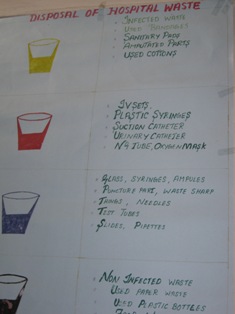 DISPOSAL OF HOSPITAL WASTE
INFECTED WASTE
USED BANDAGES
SANITARY PADS
AMPUTATED PARTS
USED COTTONS
IV SETS,
PLASTIC SYRINGES
SUCTION CATHETER
URINARY CATHETER
NG TUBE, OXYGEN MASK
GLASS, SYRINGES, AMPULES
PUNCTURE WASTE SHARP
NEEDLES
TEST TUBES
SLIDES, PIPETTES
NON INFECTED WASTE
USED PAPER WASTE
USED PLASTIC BOTTLES